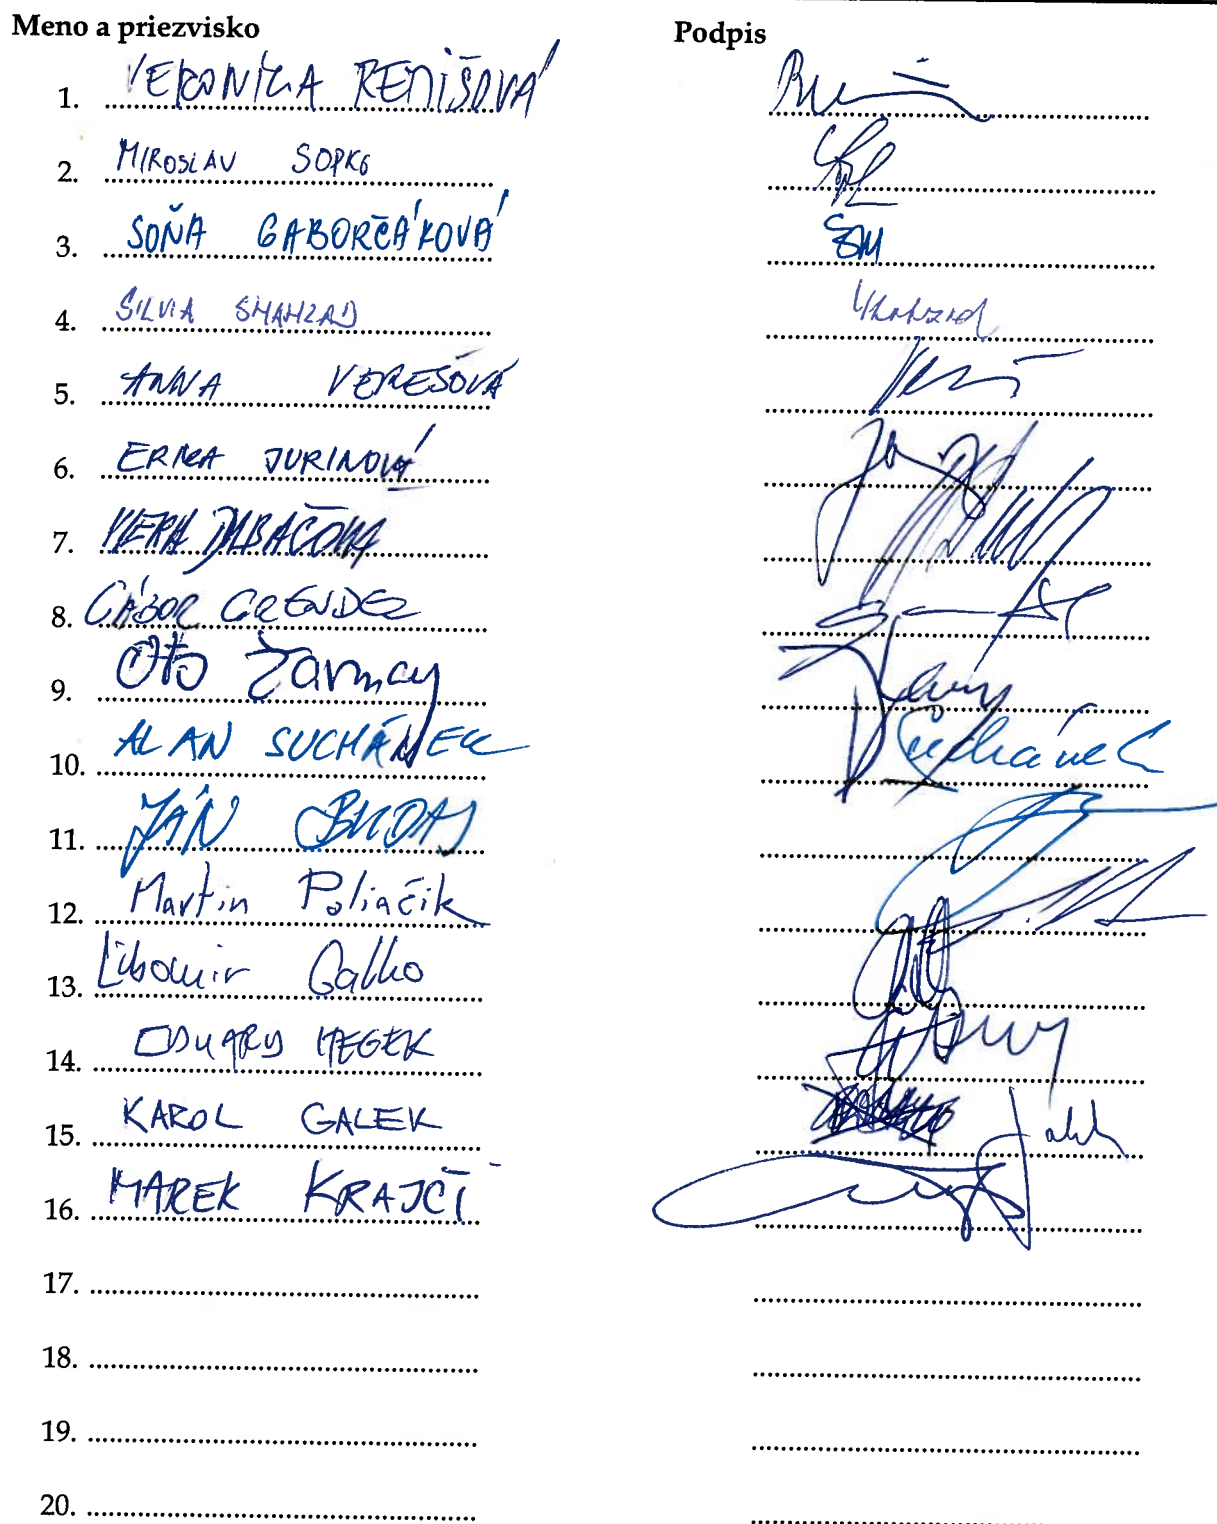 Meno a priezvisko Podpis
1. VERONIKA REMIŠOVÁ
2. MIROSLAV SOPKO
3. SOŇA GABORČÁKOVÁ
4. SILVIA SHAHZAD Shahzad
5. ANNA VEREŠOVÁ
6. ERIKA JURINOVÁ
7. VIERA DUBAČOVÁ
8. GÁBOR GRENDEL
9. Oto Žarnay
10. ALAN SUCHÁNEK Suchánek
11. JÁN BUDAJ
12. Martin Poliačik
13. Ľubomír Galko
14. EDUARD HEGER
15. KAROL GALEK
16. MAREK KRAJČÍ
17.
18.
19.
20.